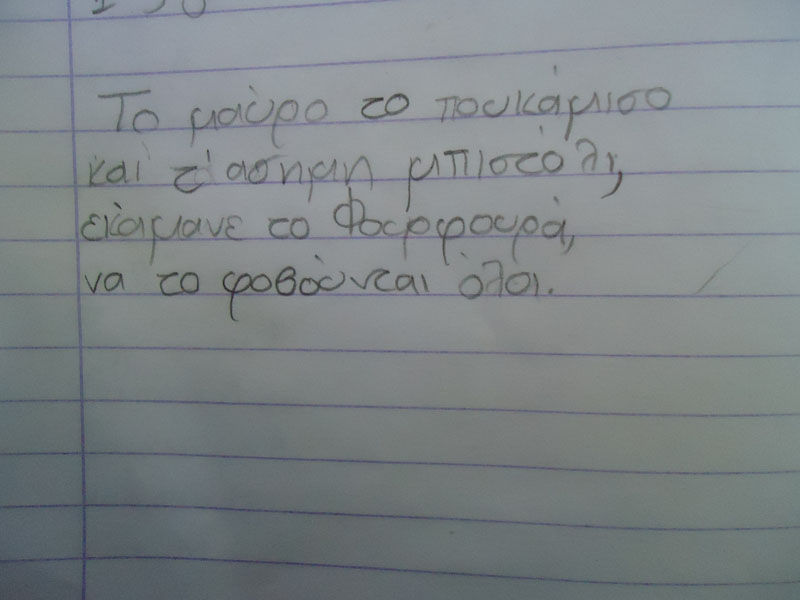 Το μαύρο το πουκάμισο
και τ' ασημη μπιστόλι,
εκάμανε το Φουρφουρά,
να το φοβούνται όλοι.